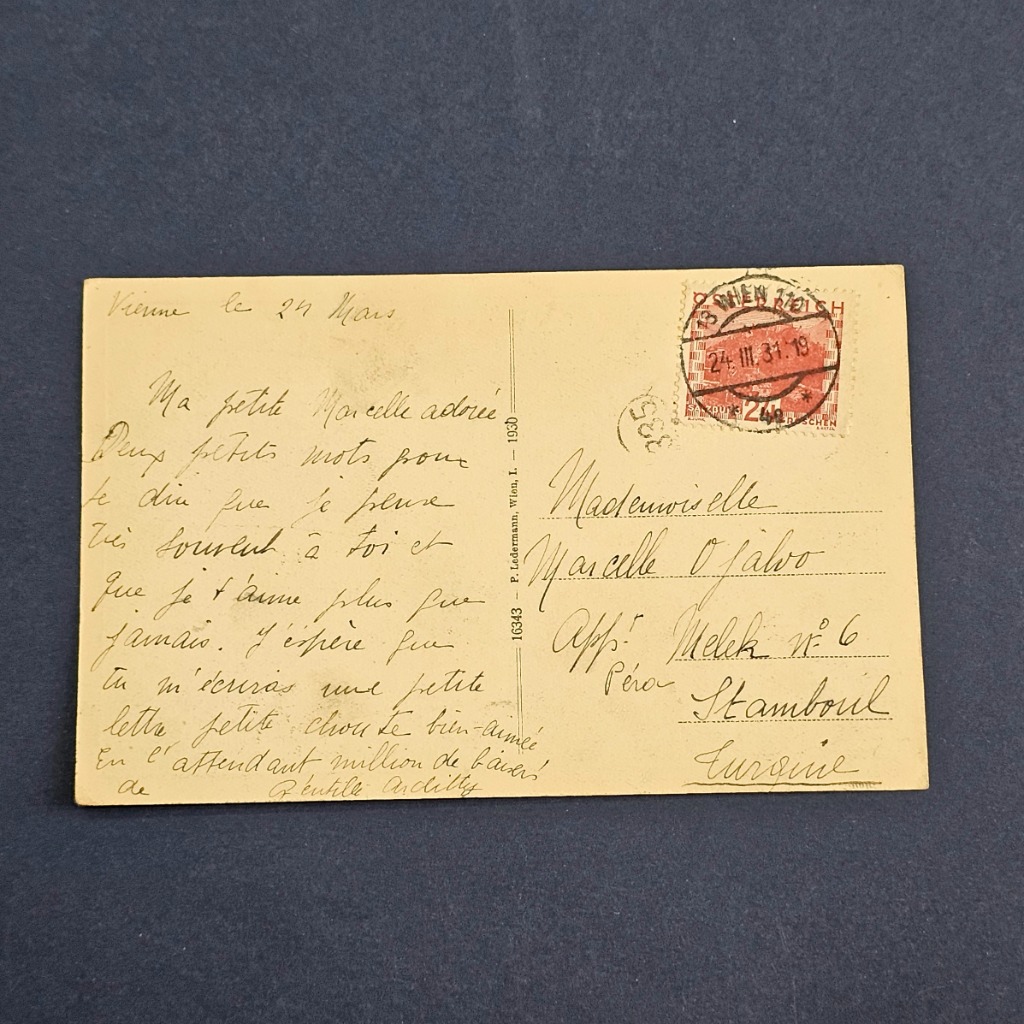 Vienne le 24 Mars
Ma petite Marcelle adorée
Deux petits mots pour
te dire que je pense
très souvent à toi et
que je t'aime plus que
jamais. J'espère que
tu m'écriras une petite
lettre petite choute bien-aimée
En l'attendant million de baisers
de Ardilly
16343 – P. Ledermann, Wien, I. – 1930
ÖSTERREICH
24
18 WIEN 110
24.III.31.19
* 4a *
335
Mademoiselle
Marcelle Ojalvo
Appt Melek No 6
Péra
Stamboul
Turquie